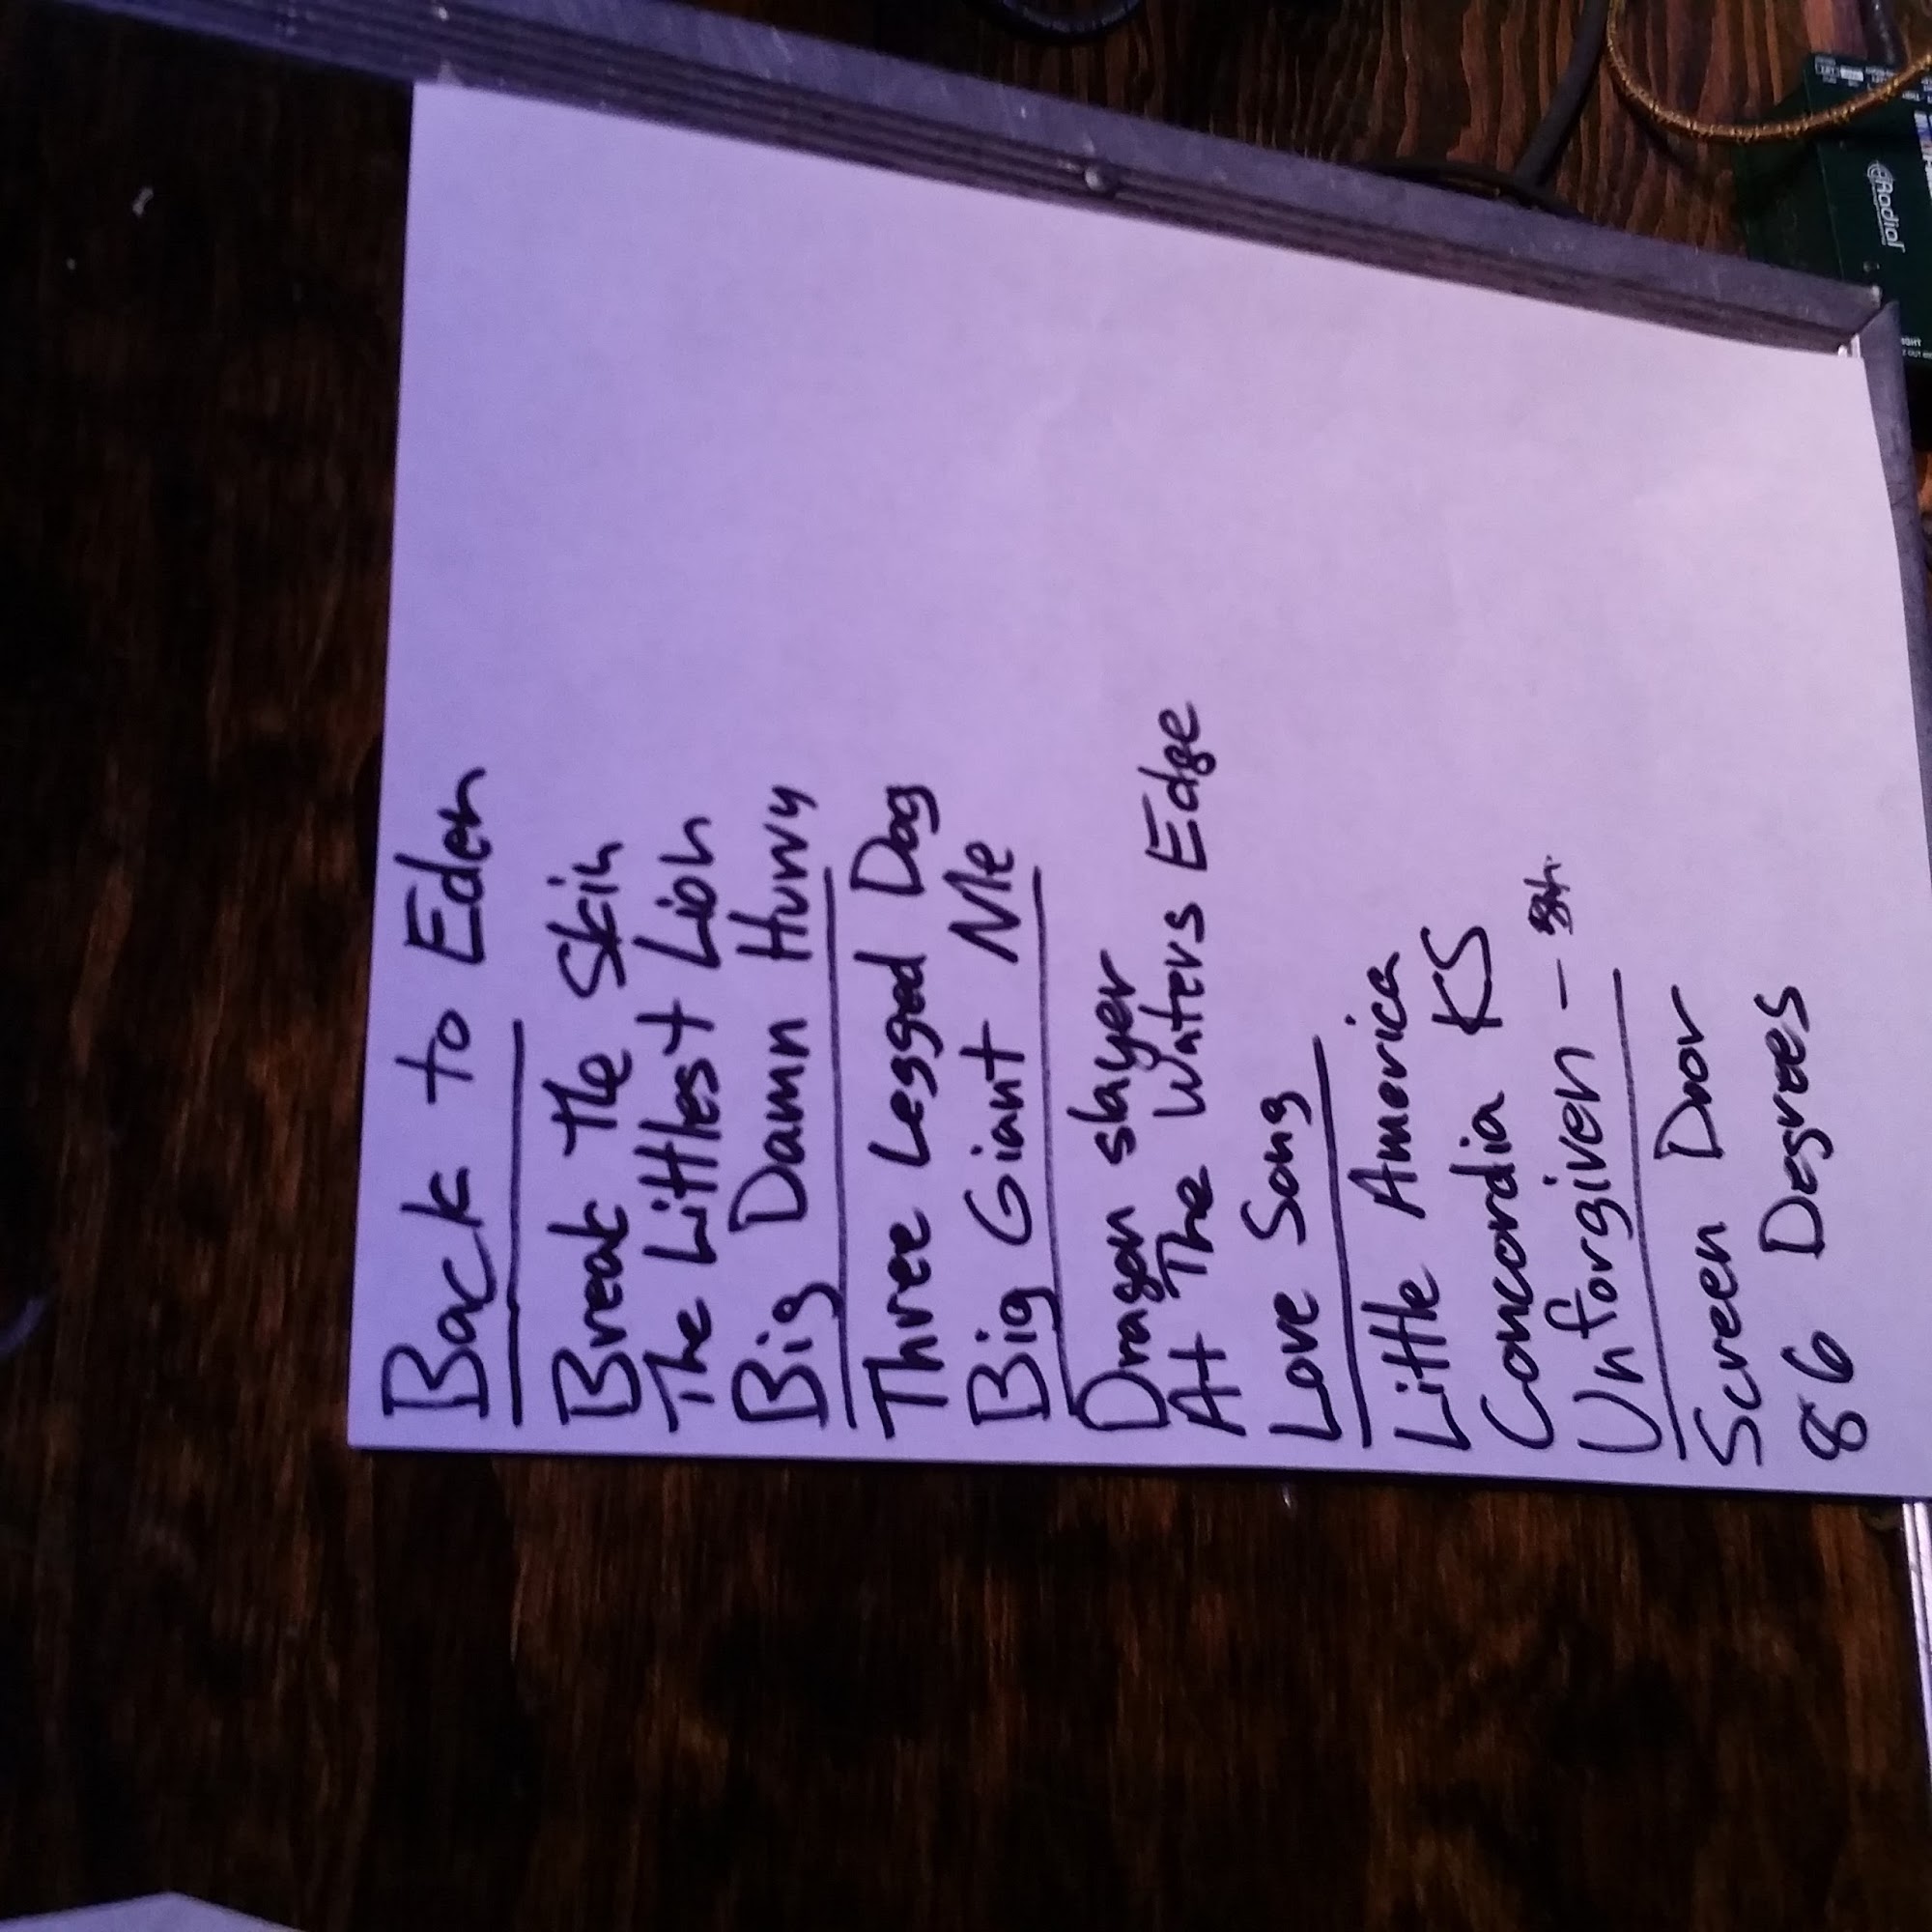 Back to Eden
Break the Skin
The Littlest Lion
Big Damn Hurry
Three Legged Dog
Big Giant Me
Dragon slayer
At The Waters Edge
Love Song
Little America
Concordia KS
Unforgiven -
Screen Door
86 Degrees
Radial